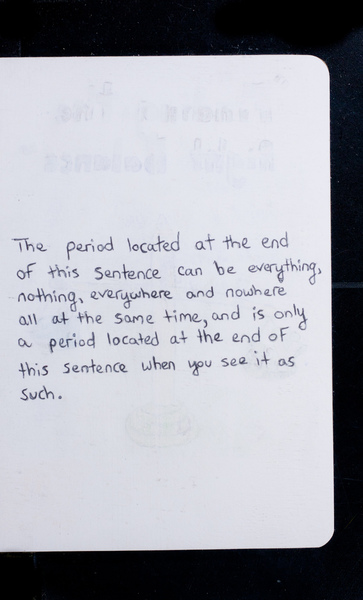 The period located at the end
of this sentence can be everything,
nothing, everywhere and nowhere
all at the same time, and is only
a period located at the end of
this sentence when you see it as
such.